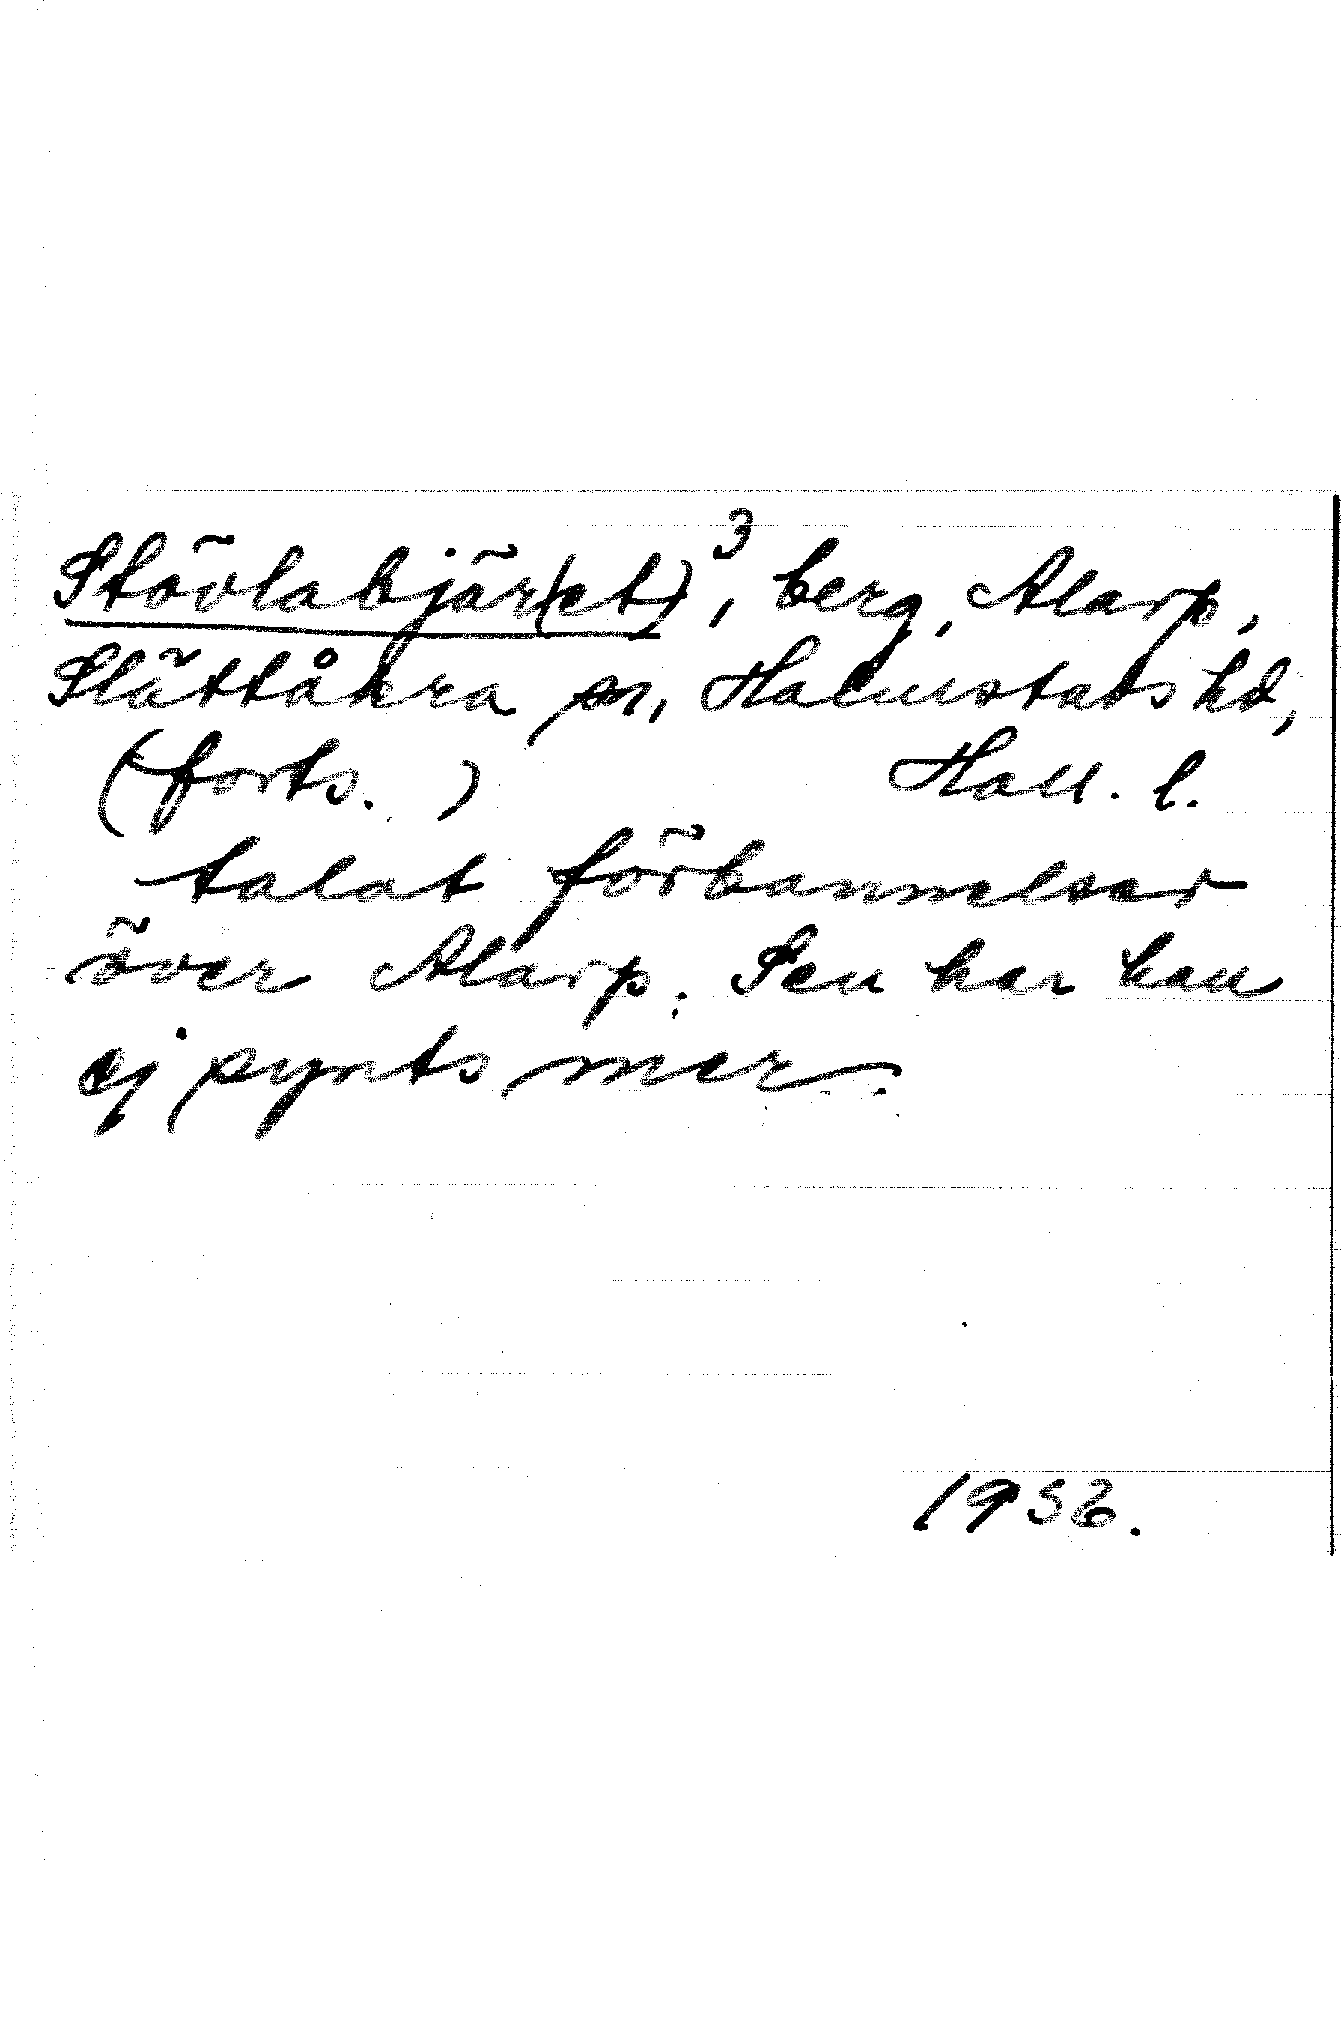 Stövlabjär(et)³, berg, Alarp,
Slättåkra sn, Halmstads hd,
(forts. ) Hall. l.
talat förbannelser
över Alarp. Sen har han
ej synts mer.
1956.